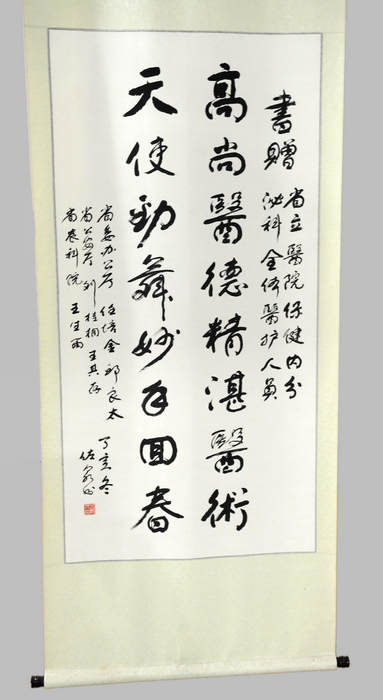 書贈
省立醫院保健内分
泌科全体醫护人員
高尚醫德精湛醫術
天使勁舞妙手回春
省委办公厅 任培金 邱良太
省公安厅 刘桂桐 王其存
省农科院 王宜雨
丁亥冬
佐泉